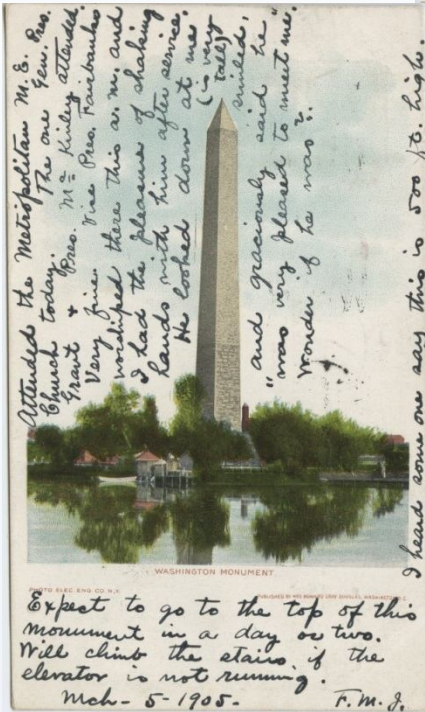 Attended the Metropolitan M. E.
Church today. The one Gen. Pres.
Grant + Pres. Mc Kinley attended.
Very fine. Vice Pres. Fairbanks
worshiped there this a. m. and
I had the pleasure of shaking
hands with him after service.
He looked down at me
(is very
tall)
smiled,
and graciously said he
"was very pleased to meet me".
Wonder if he was?.
I heard some one say this is 500 ft. high.
WASHINGTON MONUMENT.
PHOTO ELEC. ENG. CO. N.Y.
PUBLISHED BY
WASHINGTON D.C.
Expect to go to the top of this
monument in a day or two.
Will climb the stairs if the
elevator is not running.
Mch - 5 - 1905 -
F. M. J.